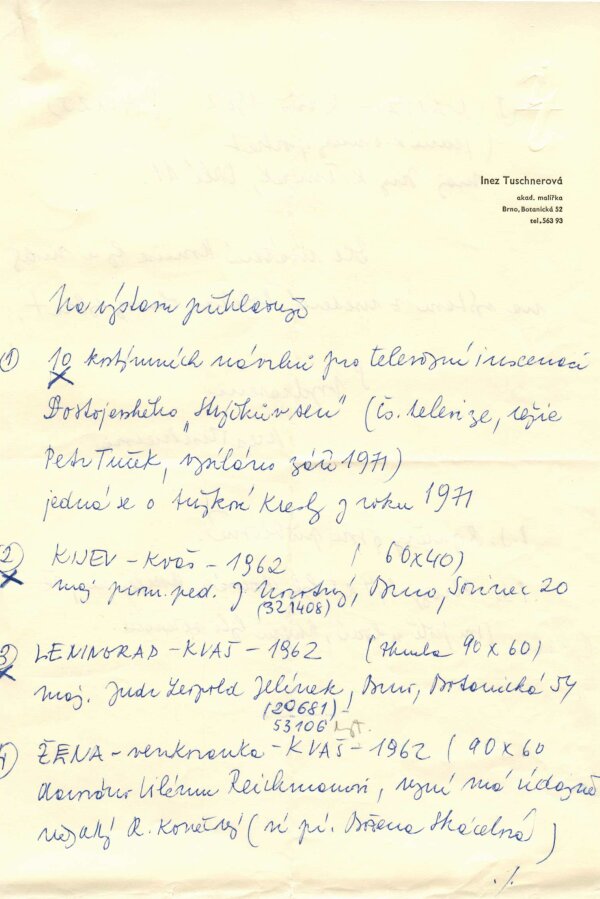 Inez Tuschnerová
akad. malířka
Brno, Botanická 52
tel. 563 93
Na výstavu přihlašuji
① 10 kostýmních návrhů pro televizní inscenaci
Dostojevského "Strýčkův sen" (čs. televize, režie
Petr Tuček, vysíláno září 1971)
jedná se o tužkové kresby z roku 1971
② KIJEV - Kvaš - 1962 ( 60x40)
maj prom. ped. J Novotný, Brno, 20
(321408)
③ LENINGRAD - KVAŠ - 1962 ( 90x60)
maj. Judr Leopold Jelínek, Brno, Botanická 54
(20681) -
53106
④ ŽENA - venkovanka - KVAŠ - 1962 ( 90x60
darováno Vilému Reichmannovi, nyní má údajně
nějaký R. Konečný (ví pí. Božena Skácelová)
./.